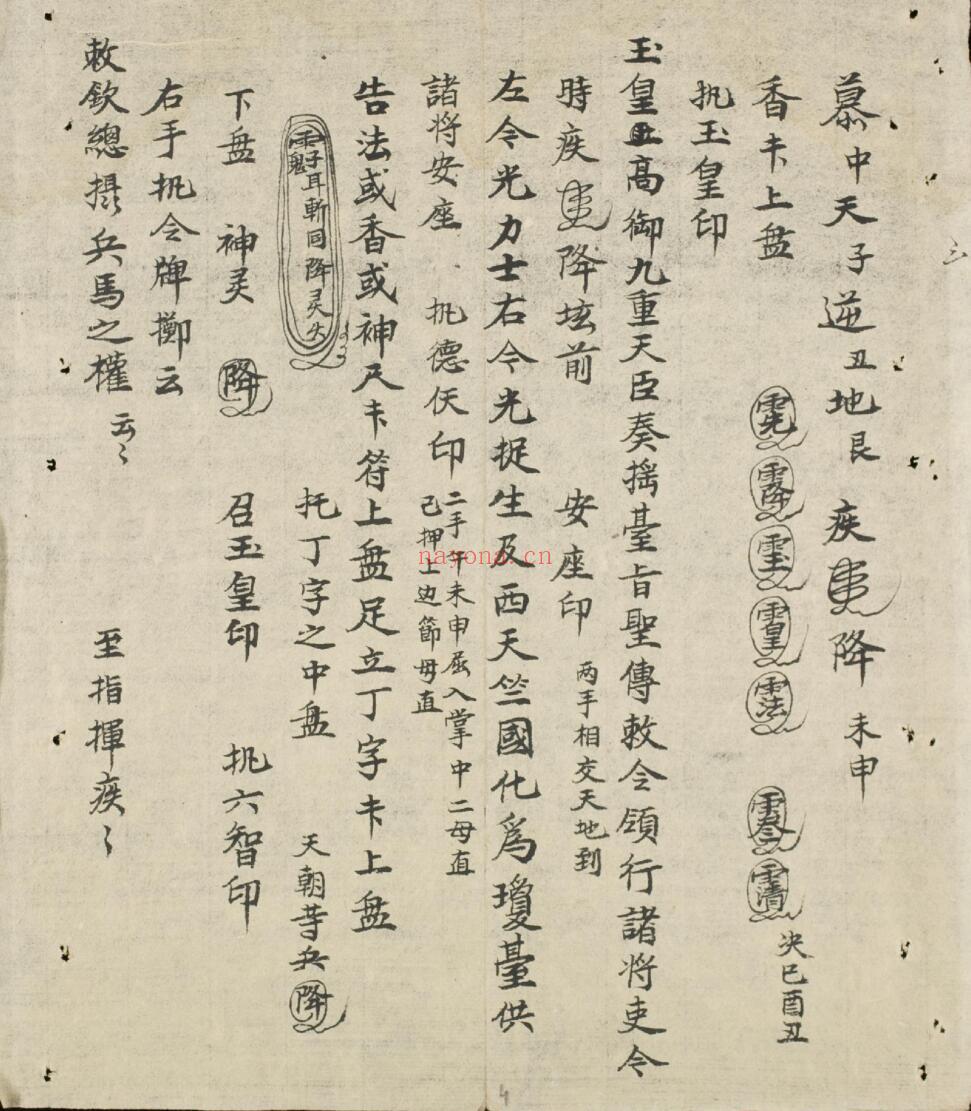 慕中天子逆丑地艮 疾 降 未申
香卡上盘 決巳酉丑
执玉皇印
玉皇丑高御九重天臣奏摇臺旨聖傳敕令領行諸将吏令
時疾 降坛前 安座印 两手相交天地到
左令光力士右令光捉生及西天竺國化爲瓊臺供
諸将安座 执德仸印 二手午未申屈入掌中二母直
己押上边節母直
告法或香或神尺卡符上盘足立丁字卡上盘
耳斬同降灵 托丁字之中盘 天朝等兵降
下盘 神灵 降 召玉皇印 执六智印
右手执令牌擲云
敕欽總摄兵馬之權云〻 至指揮疾〻
nayona.cn
4